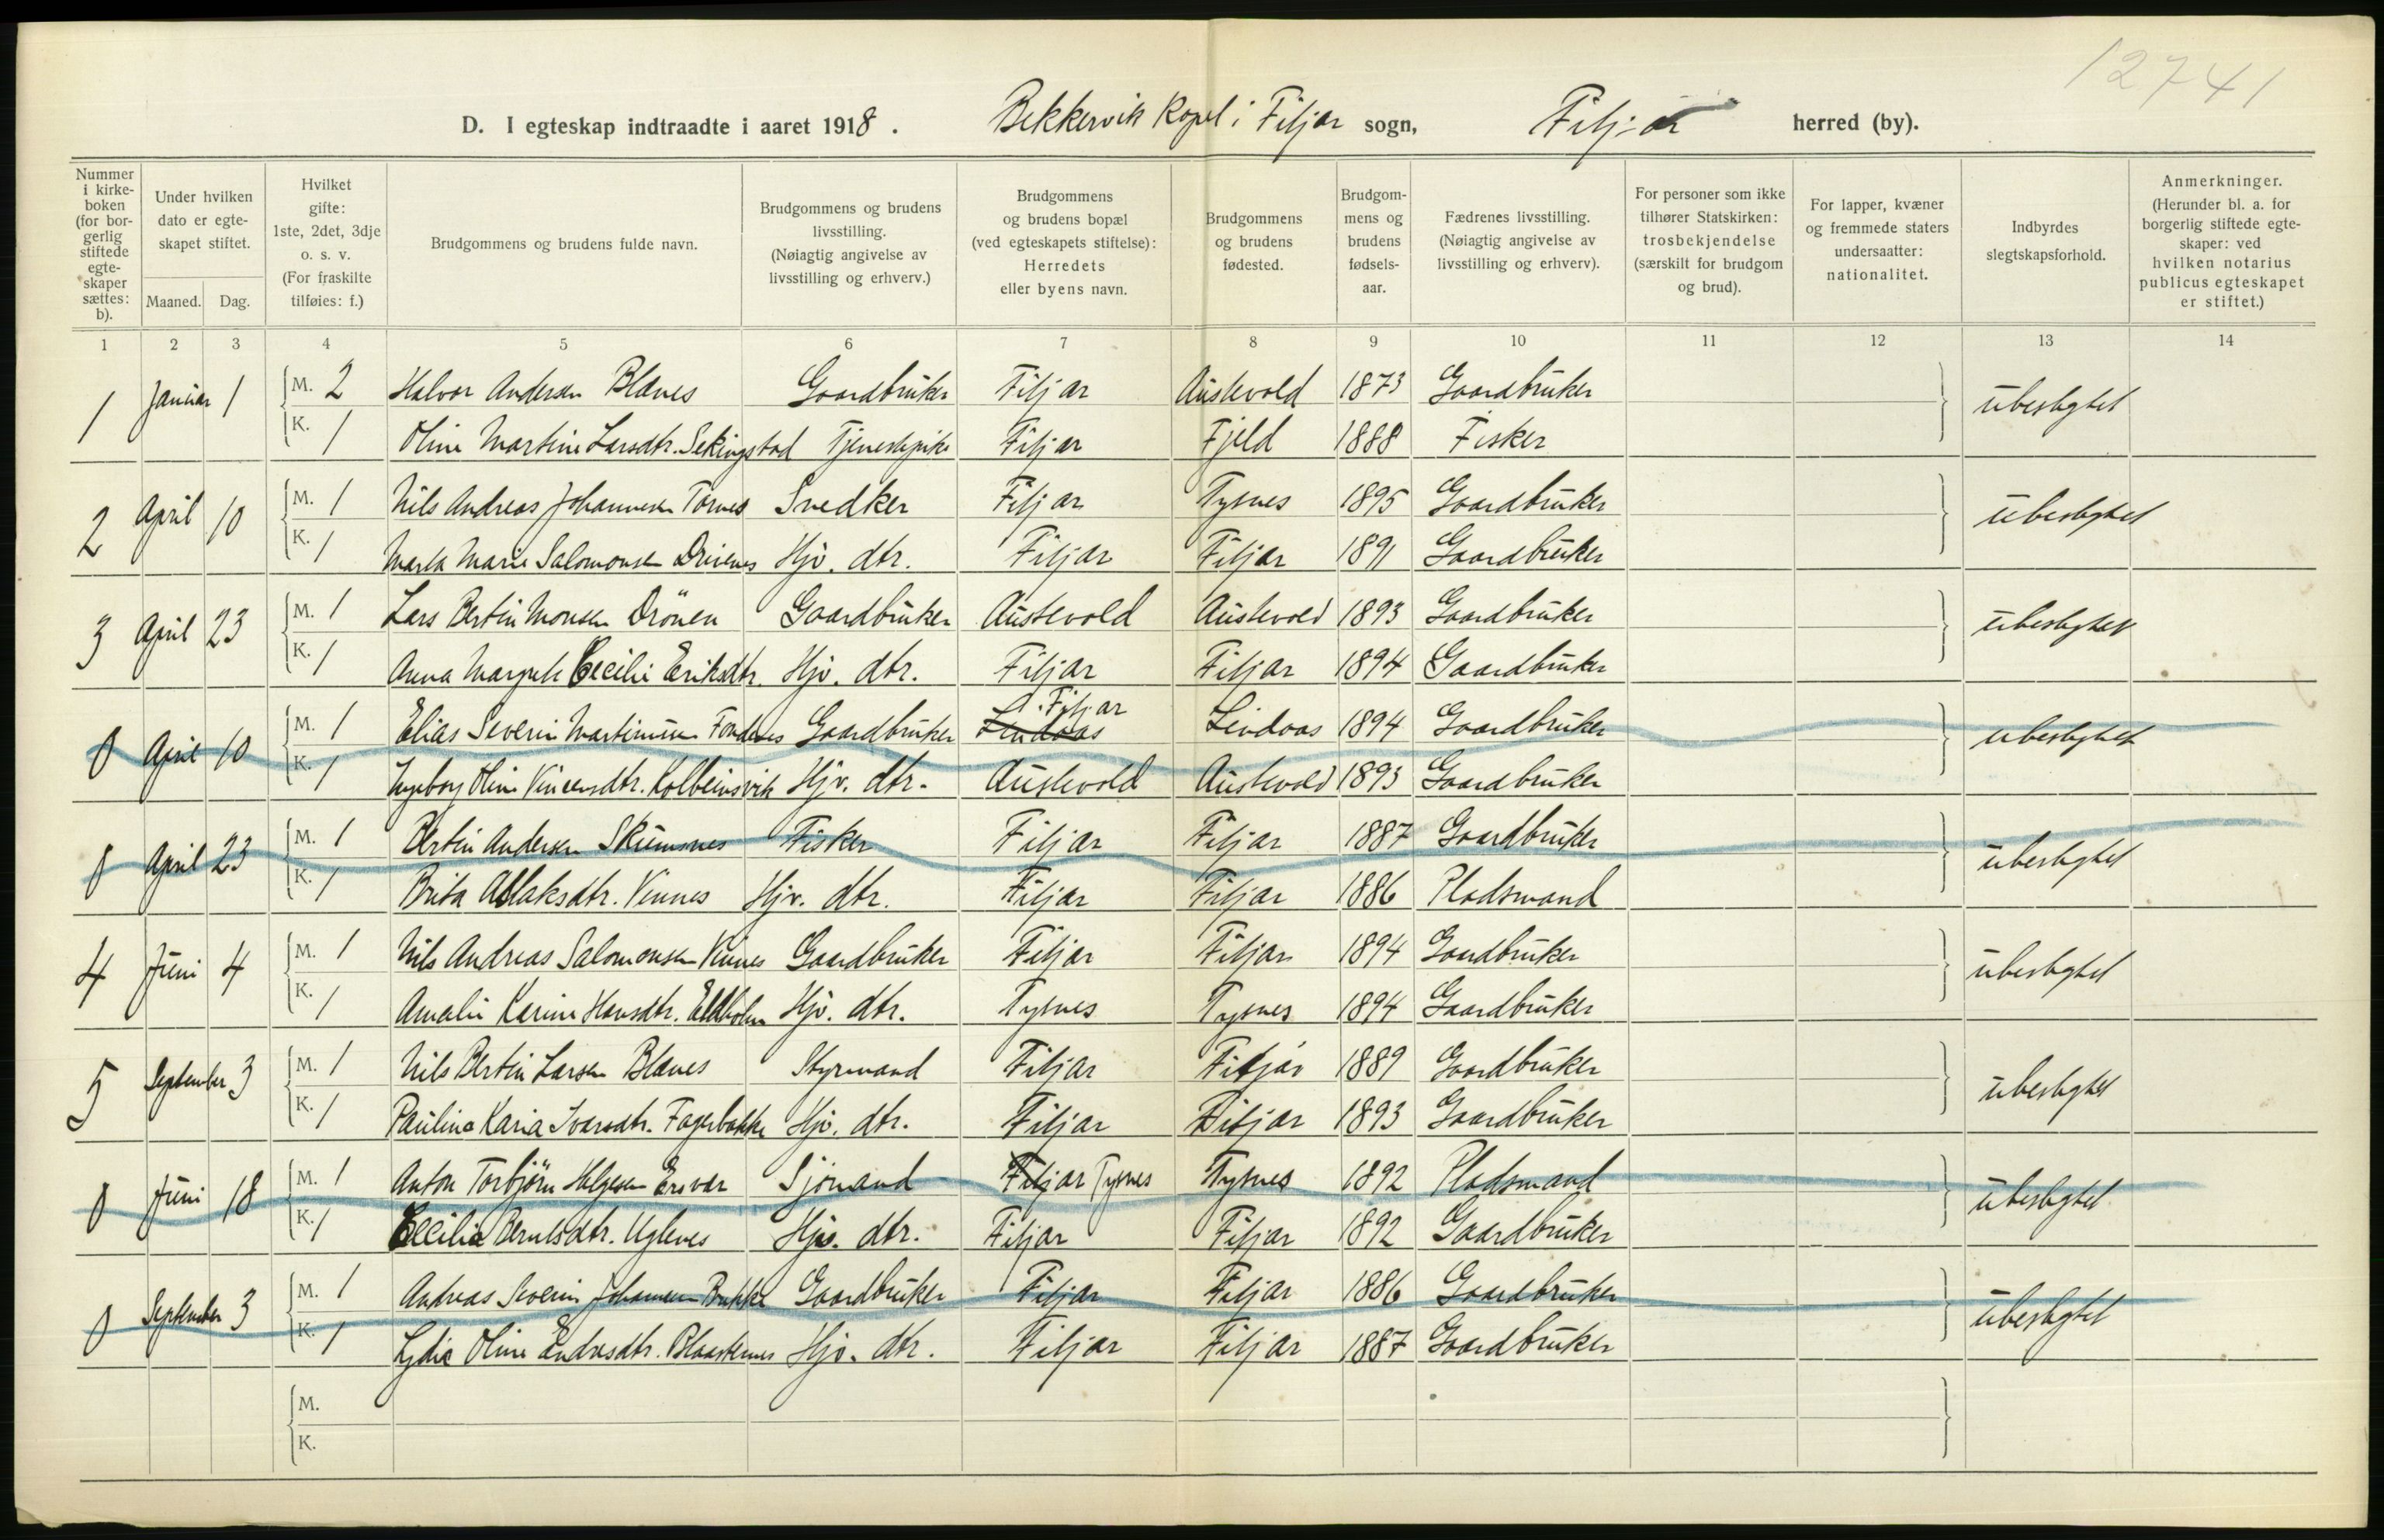 12741
D. I egteskap indtraadte i aaret 1918. Bekkervik Kapel i Fitjar sogn, Fitjar herred (by).
Nummer i kirkeboken (for borgerlig stiftede egteskaper sættes: b).
Under hvilken dato er egteskapet stiftet.
Maaned. Dag.
Hvilket gifte: 1ste, 2det, 3dje o. s. v. (For fraskilte tilføies: f.)
Brudgommens og brudens fulde navn.
Brudgommens og brudens livsstilling. (Nøiagtig angivelse av livsstilling og erhverv.)
Brudgommens og brudens bopæl (ved egteskapets stiftelse): Herredets eller byens navn.
Brudgommens og brudens fødested.
Brudgommens og brudens fødselsaar.
Fædrenes livsstilling. (Nøiagtig angivelse av livsstilling og erhverv).
For personer som ikke tilhører Statskirken: trosbekjendelse (særskilt for brudgom og brud).
For lapper, kvæner og fremmede staters undersaatter: nationalitet.
Indbyrdes slegtskapsforhold.
Anmerkninger. (Herunder bl. a. for borgerlig stiftede egteskaper: ved hvilken notarius publicus egteskapet er stiftet.)
1 2 3 4 5 6 7 8 9 10 11 12 13 14
1 Januar 1 M. 2 Halvor Andersen Blanes Gaardbruker Fitjar Austevold 1873 Gaardbruker ubeslegtet
K. 1 Oline Martine Larsdtr. Sekingstad Tjenestepike Fitjar Fjeld 1888 Fisker
2 April 10 M. 1 Nils Andreas Johannesen Tornes Snedker Fitjar Tysnes 1895 Gaardbruker ubeslegtet
K. 1 Marta Marie Salomonsen Drivenes Hjv. dtr. Fitjar Fitjar 1891 Gaardbruker
3 April 23 M. 1 Lars Bertin Monsen Drönen Gaardbruker Austevold Austevold 1893 Gaardbruker ubeslegtet
K. 1 Anna Margrete Cecilie Eriksdtr. Hjv. dtr. Fitjar Fitjar 1894 Gaardbruker
0 April 10 M. 1 Elias Severin Martinusen Fondenes Gaardbruker Lindaas Fitjar Lindaas 1894 Gaardbruker ubeslegtet
K. 1 Ingeborg Oline Vincensdtr. Kolbeinsvik Hjv. dtr. Austevold Austevold 1893 Gaardbruker
0 April 23 M. 1 Bertin Andersen Skumsnes Fisker Fitjar Fitjar 1887 Gaardbruker ubeslegtet
K. 1 Brita Aslaksdtr. Vinnes Hjv. dtr. Fitjar Fitjar 1886 Pladsmand
4 Juni 4 M. 1 Nils Andreas Salomonsen Vinnes Gaardbruker Fitjar Fitjar 1894 Gaardbruker ubeslegtet
K. 1 Amalie Karine Hansdtr. Eldholm Hjv. dtr. Tysnes Tysnes 1894 Gaardbruker
5 September 3 M. 1 Nils Bertin Larsen Blanes Styrmand Fitjar Fitjar 1889 Gaardbruker ubeslegtet
K. 1 Pauline Karia Ivarsdtr. Fagerbakke Hjv. dtr. Fitjar Fitjar 1893 Gaardbruker
0 Juni 18 M. 1 Anton Torbjörn Helgesen Ersvær Sjömand Fitjar Tysnes Tysnes 1892 Pladsmand ubeslegtet
K. 1 Cecilie Berntsdtr. Uglenes Hjv. dtr. Fitjar Fitjar 1892 Gaardbruker
0 September 3 M. 1 Andreas Severin Johannesen Gaardbruker Fitjar Fitjar 1886 Gaardbruker ubeslegtet
K. 1 Lydia Oline Hjv. dtr. Fitjar Fitjar 1887 Gaardbruker
M.
K.